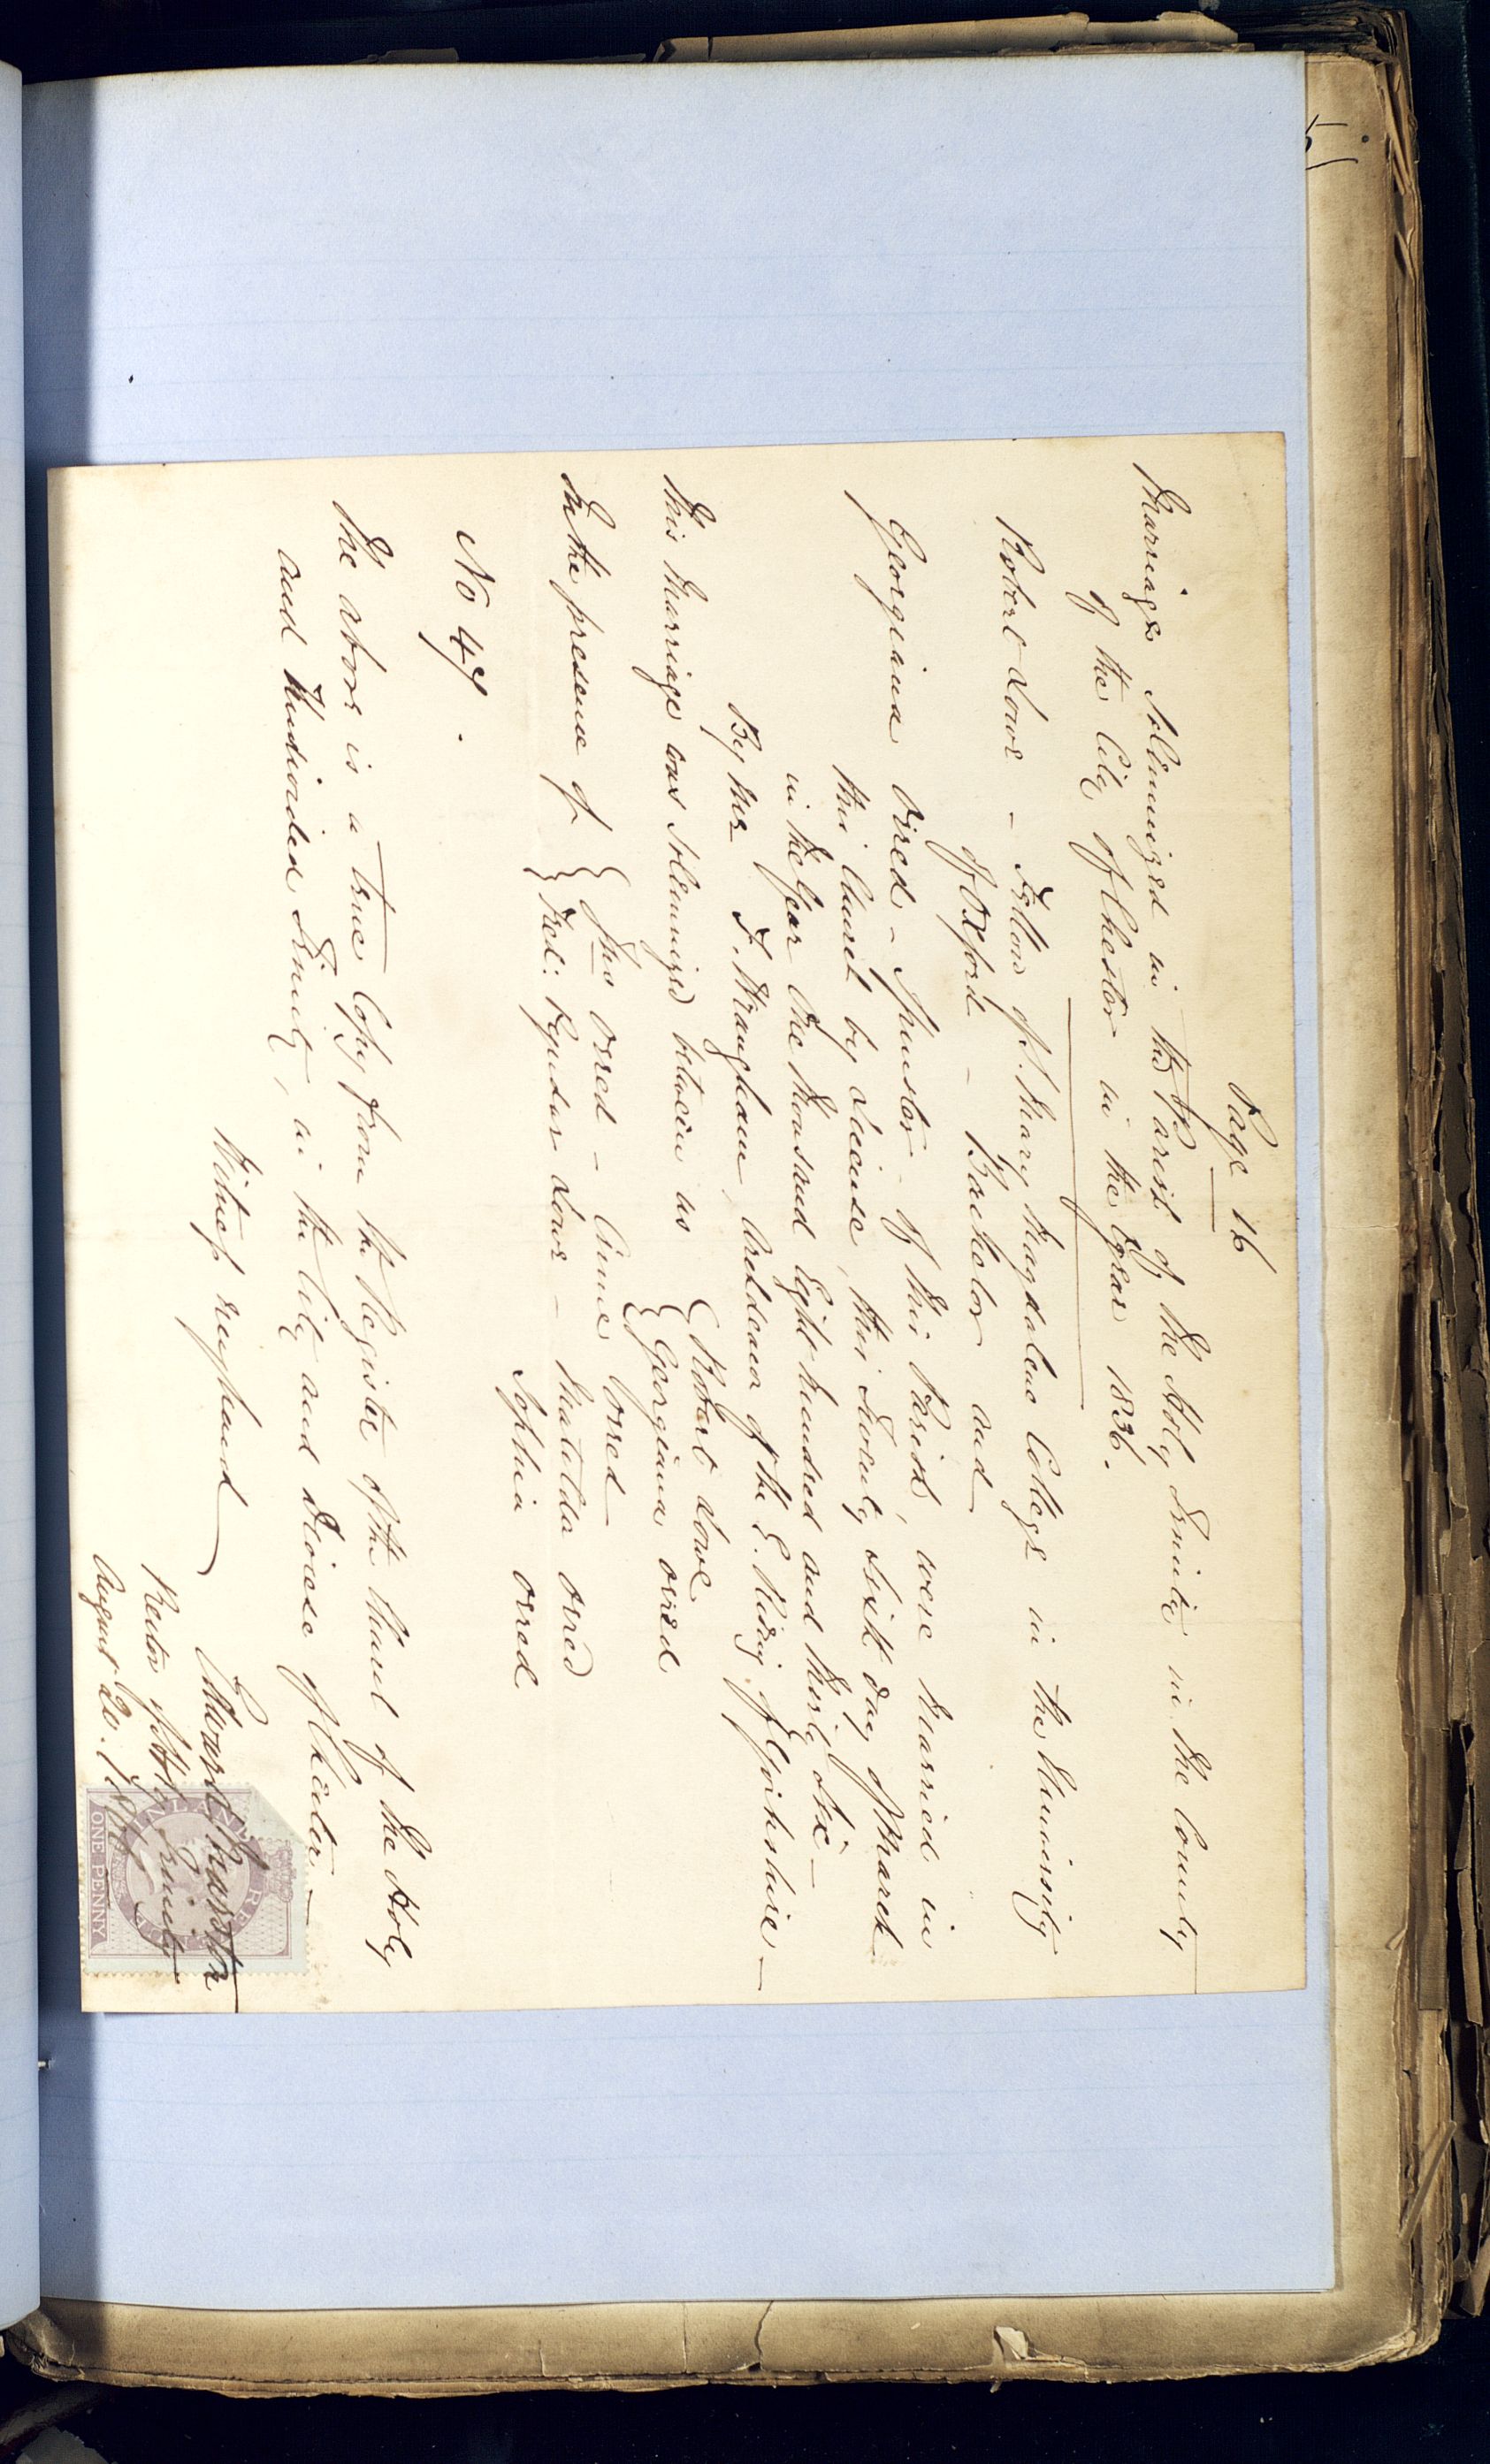 Page 16
Marriages Solemnized in the Parish of the Holy Trinity in the County
of the City of Chester in the Year 1836.
Robert Lowe - Fellow of St. Mary Magdalene College in the University
of Oxford - Bachelor and
Georgiana Orred - Spinster - of this Parish, were Married in
this Church by License, this Twenty Sixth day of March
in the Year One Thousand Eight hundred and thirty Six -
By me F. Wrangham, Archdeacon of the E. Riding of Yorkshire -
This Marriage was Solemnized between us { Robert Lowe
{ Georgiana Orred
In the presence of { Jno Orred - Anne Orred
{ Fred: Pyndar Lowe - Matilda Orred
Sophia Orred
No 47.
The above is a true Copy from the Register of the Church of the Holy
and Undivided Trinity, in the City and Diocese of Chester -
Witness my hand
Edward Marston
Rector of Holy Trinity
August 20.
INLAND REVENUE
ONE PENNY